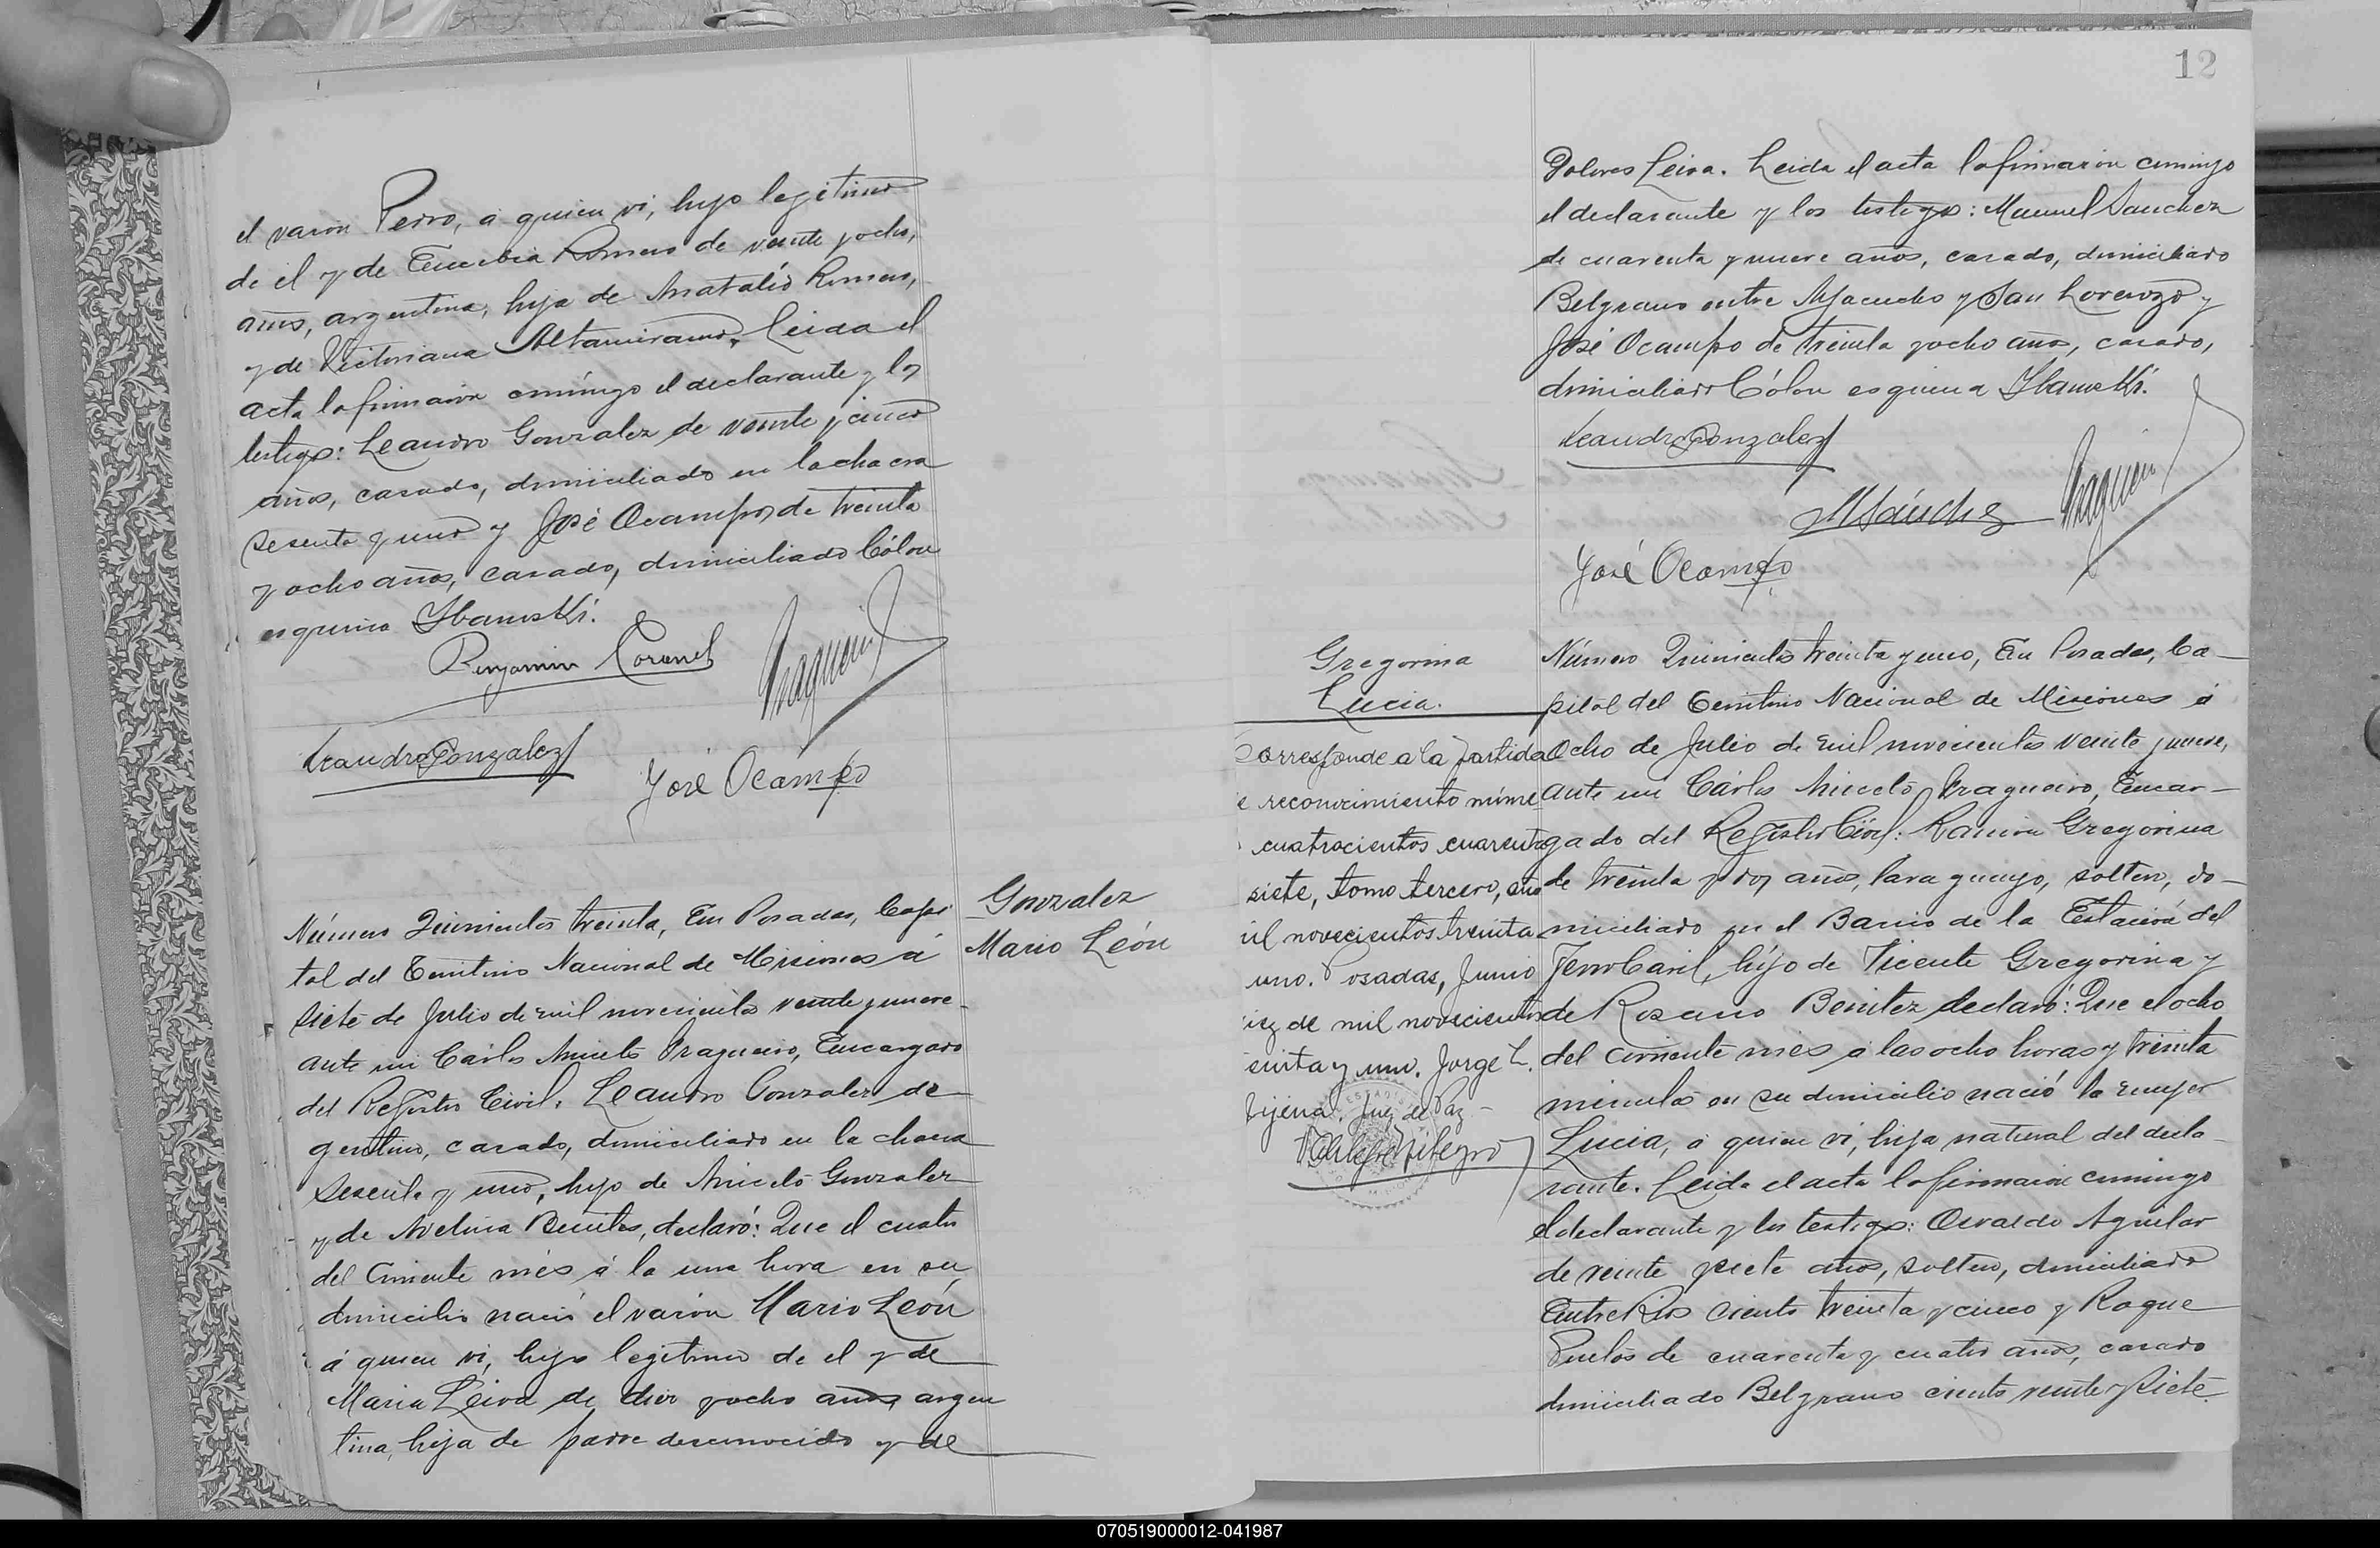 el varon Pedro, á quien vi, hijo legitimo
de el y de Eusebia Romero de veinte y ocho,
años, argentina, hija de Anatalio Romero,
y de Victoriana Altamirano. Leida el
acta la firmaron conmigo el declarante y los
testigos: Leandro Gonzalez de veinte y cinco
años, casado, domiciliado en la chacra
sesenta y uno y José Ocampo, de treinta
y ocho años, casado, domiciliado Cólon
esquina
Benjamin Coronel
Leandro Gonzalez
José Ocampo
Número Quinientos treinta, En Posadas, Capi
tal del Territorio Nacional de Misiones á
siete de Julio de mil novecientos veinte y nueve
ante mi Carlos Aniceto Encargado
del Registro Civil, Leandro Gonzalez de
gentino, casado, domiciliado en la chacra
sesenta y uno, hijo de Aniceto Gonzalez
y de Avelina Benites, declaró: Que el cuatro
del corriente més á la una hora en su
domicilio nació el varón Mario León
á quien vi, hijo legitimo de el y de
Maria Leiva de diez y ocho años argen
tina, hija de padre desconocido y de
Gonzalez
Mario León
12
Dolores Leiva. Leida el acta la firmaron conmigo
el declarante y los testigos: Manuel Sanchez
de cuarenta y nueve años, casado, domiciliado
Belgrano entre Ayacucho y San Lorenzo y
José Ocampo de treinta y ocho años, casado,
domiciliado Cólon esquina
Leandro Gonzalez
M Sánchez
José Ocampo
Gregorina
Lucia.
Corresponde a la partida
e reconocimiento núme
cuatrocientos cuarenta
siete, tomo tercero, año
il novecientos treinta
uno. Posadas, Junio
iez de mil novecientos
einta y uno. Jorge L.
Juez de Paz -
Número Quinientos treinta y uno, En Posadas, Ca-
pital del Territorio Nacional de Misiones á
Ocho de Julio de mil novecientos veinte y nueve,
ante mi Cárlos Aniceto Encar-
gado del Registro Civil: Ramon Gregorina
de treinta y dos años, Paraguayo, soltero, do-
miciliado en el Barrio de la Estación del
FerroCaril, hijo de Vicente Gregorina y
de Rosario Benitez declaró: Que el ocho
del corriente més á las ocho horas y treinta
minutos en su domicilio nació la mujer
Lucia, á quien vi, hija natural del decla-
rante. Leida el acta la firmaron conmigo
el declarante y los testigos: Osvaldo Aguilar
de veinte y siete años, soltero, domiciliado
Entre Rios ciento treinta y cinco y Roque
de cuarenta y cuatro años, casado
domiciliado Belgrano ciento veinte y siete.
070519000012-041987